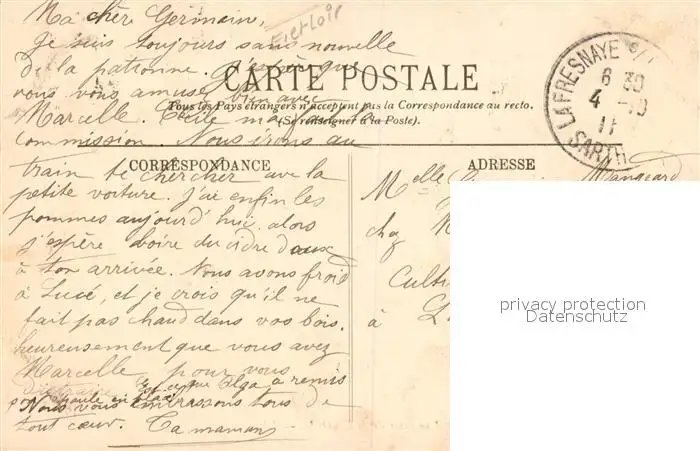 Eicl-Loir
Ma chère Germain,
Je suis toujours sans nouvelle
de la patronne. J'espère que
vous vous amusez bien avec
Marcelle. Cécile m'a fait la
commission. Nous irons au
train te chercher avec la
petite voiture. J'ai enfin les
pommes aujourd'hui. alors
j'espère boire du cidre doux
à ton arrivée. Nous avons froid
à Lucé, et je crois qu'il ne
fait pas chaud dans vos bois.
heureusement que vous avez
Marcelle pour vous
distraire. Est-ce que Olga a remis
poule en place
Nous vous embrassons tous de
tout cœur. Ta maman
CARTE POSTALE
Tous les Pays étrangers n'acceptent pas la Correspondance au recto.
(Se renseigner à la Poste).
CORRESPONDANCE
ADRESSE
LA FRESNAYE S/
6 30
4 -10
11
SARTHE
Melle Mangeard
chez
Culti
à
privacy protection
Datenschutz